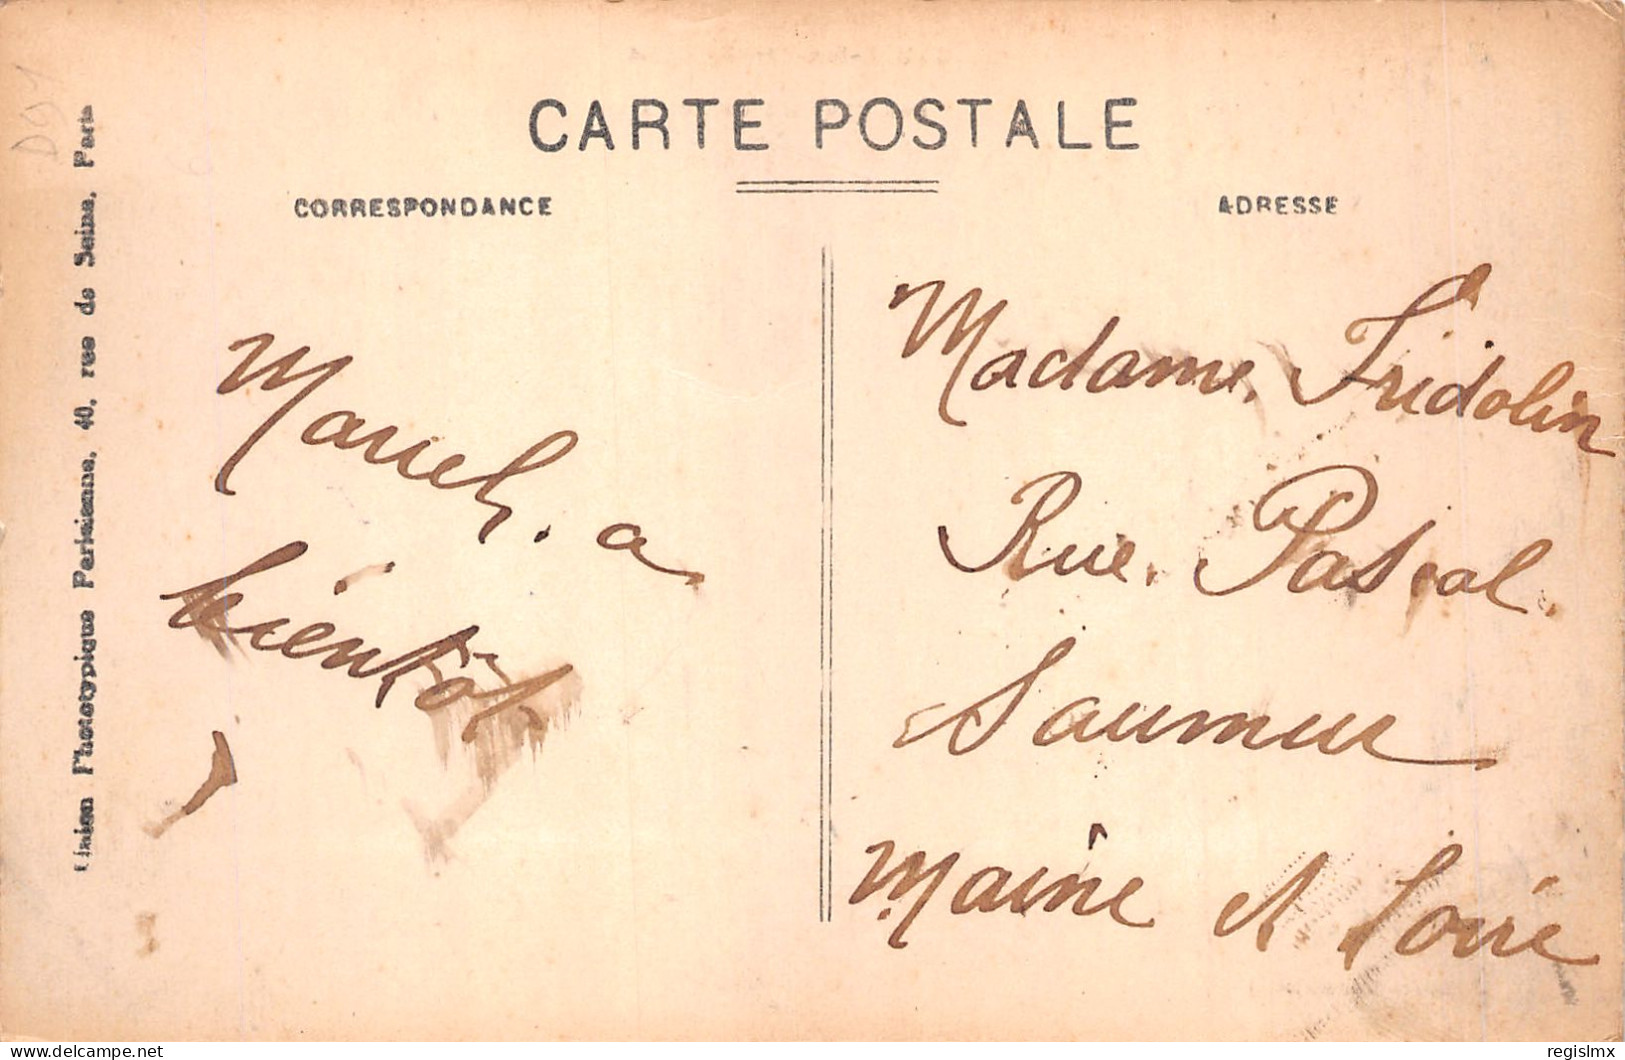 D91
Union Phototypique Parisienne, 40, rue de Seine, Paris
CARTE POSTALE
CORRESPONDANCE
ADRESSE
Marcel. a
bientôt
Madame Fridolin
Rue Pascal
Saumur
Maine et Loire
delcampe.net
regislmx